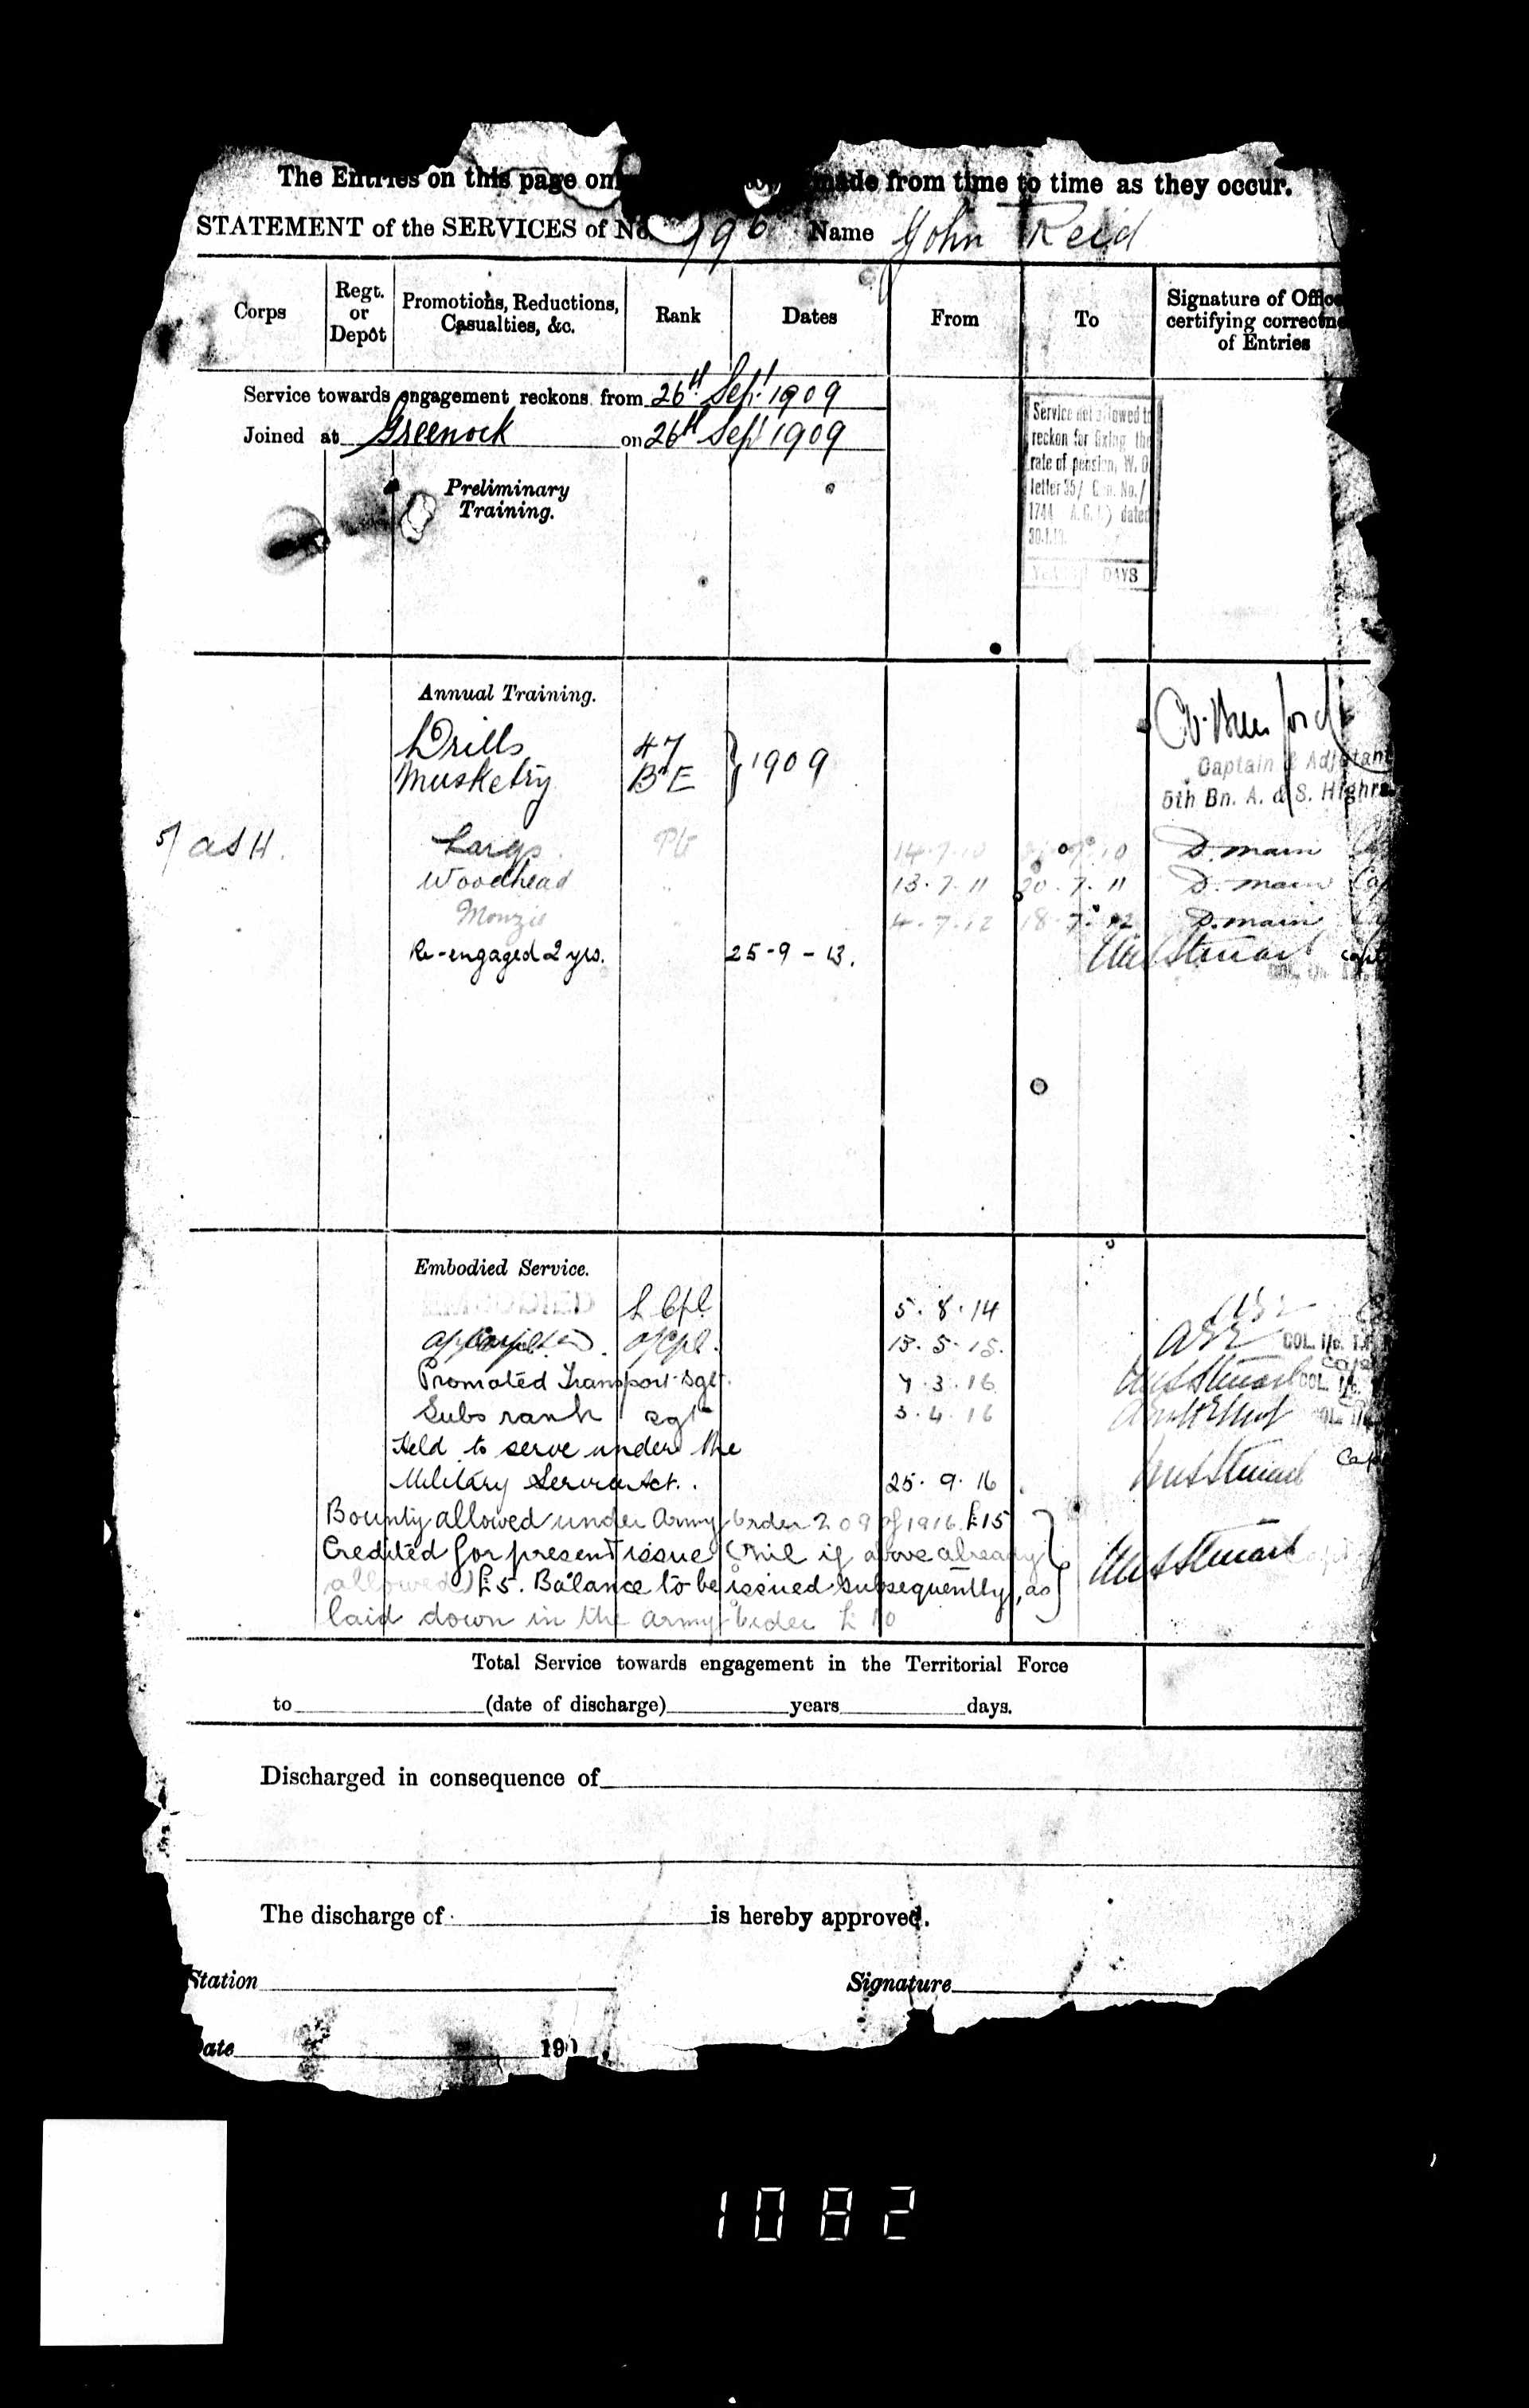 The Entries on this page made from time to time as they occur.
STATEMENT of the SERVICES of No. 796 Name John Reid
Corps
Regt. or Depôt
Promotions, Reductions, Casualties, &c.
Rank
Dates
From
To
Signature of Office
certifying correctne
of Entries
Service towards engagement reckons from 26th Sept 1909
Joined at Greenock on 26th Sept 1909
Service not allowed to
reckon for fixing the
rate of pension, W. O.
letter 35/ Gen. No./
1744 A.G. ) dated
30.1.19.
YEARS DAYS
Preliminary
Training.
Annual Training.
Drills 47
Musketry BE } 1909
Captain & Adjutant
5th Bn. A. & S. Highrs
5/ A S H. Largs. Pte 14.7.10 7.10 D. Main
Woodhead " 13.7.11 20.7.11 D. Main Cap
Monzie " 4.7.12 18.7.12 D. Main
Re-engaged 2 yrs. 25-9-13. Stuart Capt
Embodied Service.
L Cpl. 5.8.14
13.5.15. COL. I/c. T.F.
Promoted Transport Sgt. 7.3.16 Stuart Capt COL. I/c.
Subs rank Sgt 3.4.16
Held to serve under the
Military Service Act. 25.9.16 Stuart Capt
Bounty allowed under Army Order 209 of 1916 £15
Credited for present issue (Nil if above already
allowed) £5. Balance to be issued subsequently, as } Stuart Capt
laid down in the Army Order £10
Total Service towards engagement in the Territorial Force
to (date of discharge) years days.
Discharged in consequence of
The discharge of is hereby approved.
Station Signature
Date 190
1082